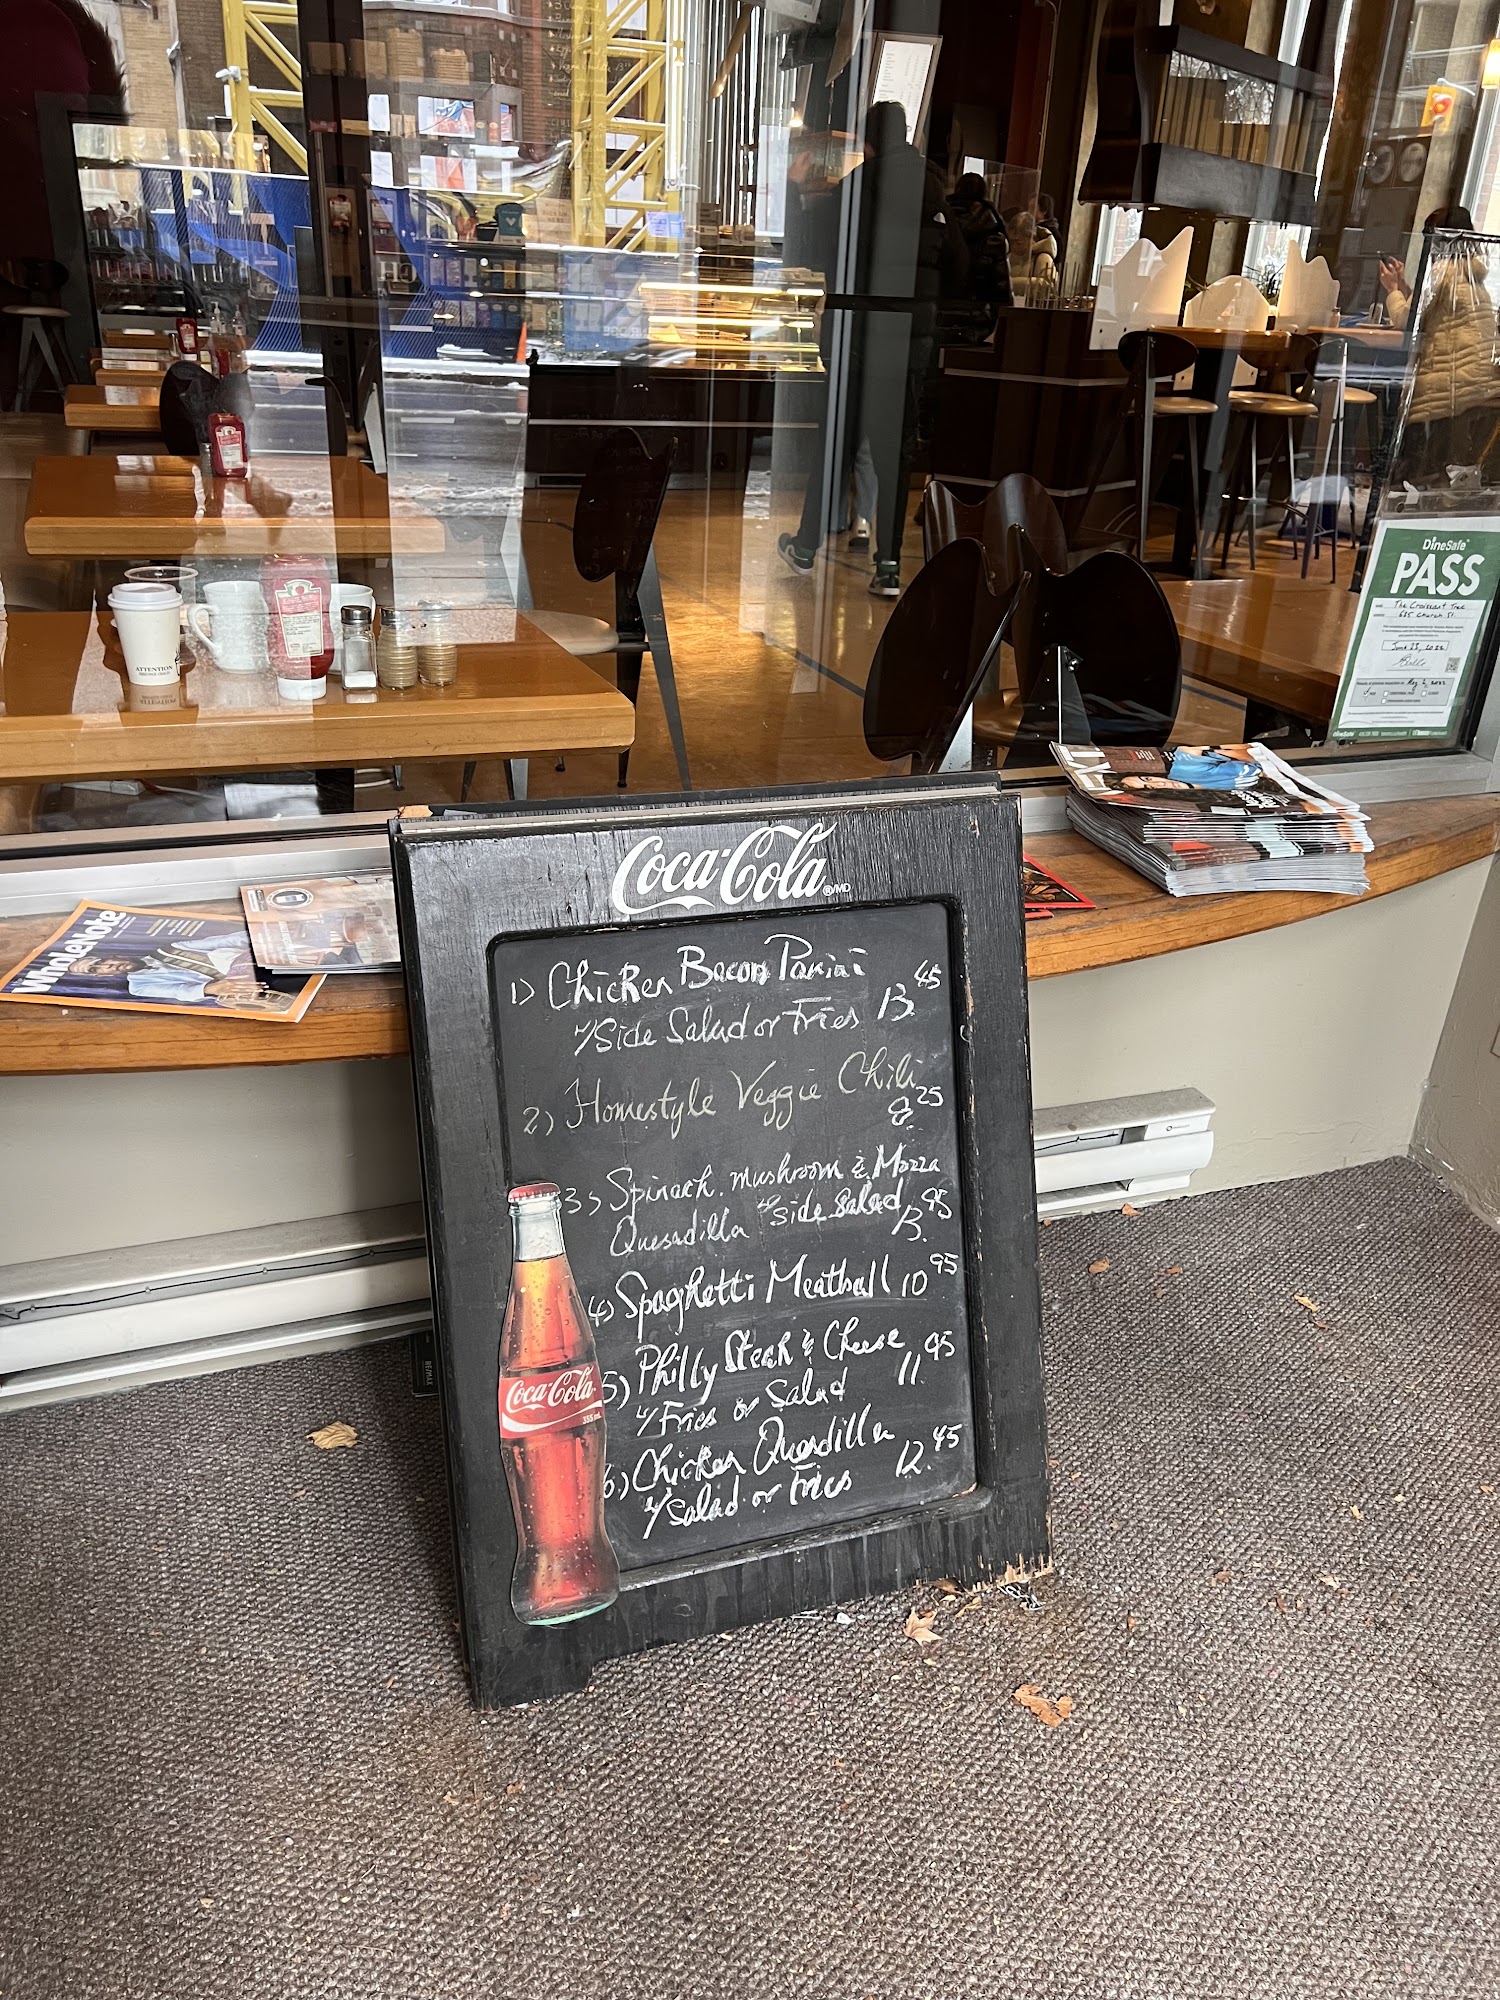 DineSafe
PASS
The Croissant Tree
625 Church St
WholeNote
ATTENTION
Coca-Cola ®/MD
1) Chicken Bacon Panini
w/Side Salad or Fries 13.45
2) Homestyle Veggie Chili
8.25
3) Spinach. mushroom & Mozza
Quesadilla w side salad 13.95
4) Spaghetti Meatball 10.95
5) Philly Steak & Cheese 11.95
w/Fries or Salad
6) Chicken Quesdilla 12.45
w/salad or Fries
Coca-Cola
355 mL
RE/MAX